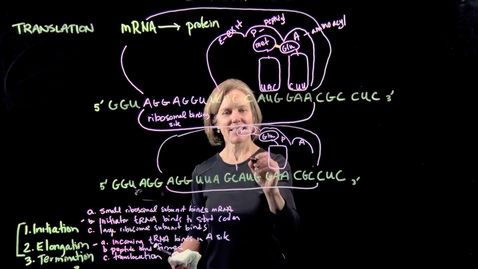 TRANSLATION mRNA → protein
Exit P - peptidyl A - aminoacyl
met Gln
UAC CUU
5' GGU AGG AGGU AUG GAA CGC CUC 3'
ribosomal binding
site
Gln P A
5' GGU AGG AGG UUA GCAUGG GAA CGC CUC 3'
a. Small ribosomal subunit binds mRNA
1. Initiation b. Initiator tRNA binds to start codon
c. large ribosomal subunit binds
2. Elongation - a. incoming tRNA binds in A site
b. peptide bond formed
3. Termination c. translocation